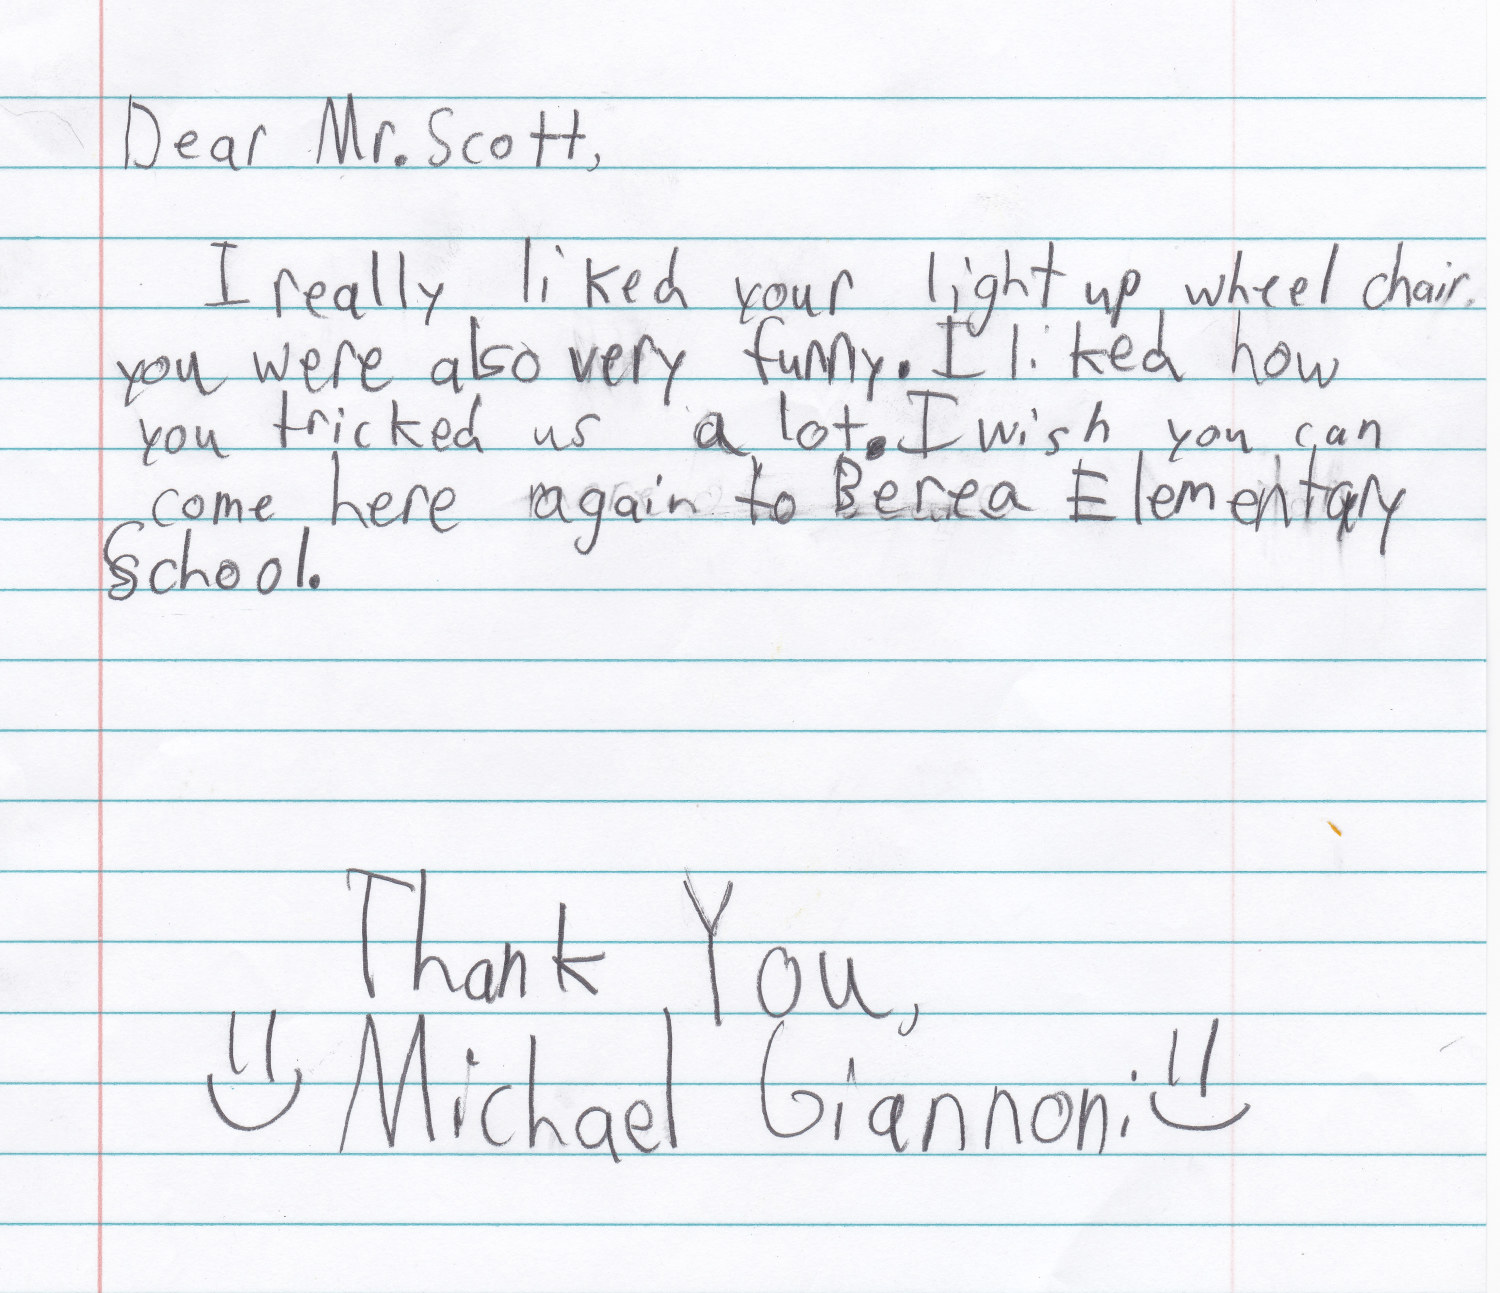 Dear Mr. Scott,
I really liked your light up wheel chair.
you were also very funny. I liked how
you tricked us a lot. I wish you can
come here again to Berea Elementary
School.
Thank You,
Michael Giannoni